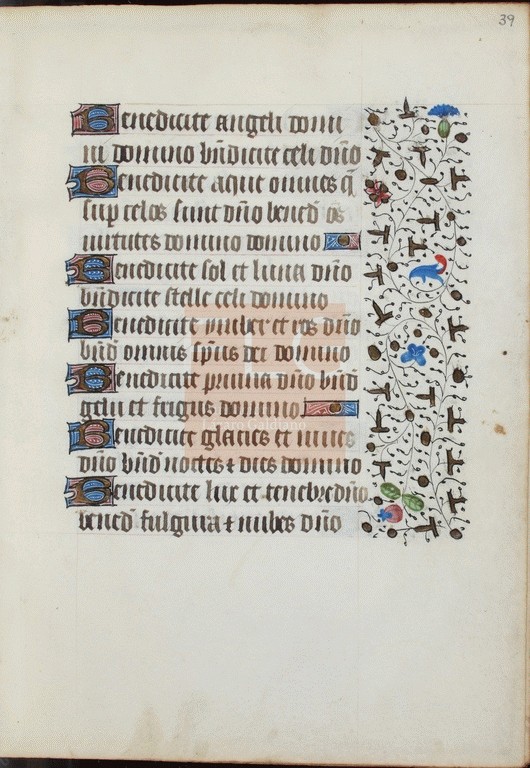 39
Benedicite angeli domi
ni domino bn̄dicite celi dn̄o
Benedicite aque omnes q̄
sup celos sunt dn̄o bened̄ ōs
uirtutes domino domino
Benedicite sol et luna dn̄o
bn̄dicite stelle celi domino
Benedicite ymber et ros dn̄o
bn̄d omnis sp̄us dei domino
Benedicite pruina dn̄o bn̄d
gelu et frigus domino
Benedicite glacies et niues
dn̄o bn̄d noctes ⁊ dies domino
Benedicite lux et tenebre dn̄o
bened̄ fulgura ⁊ nubes dn̄o
Lázaro Galdiano